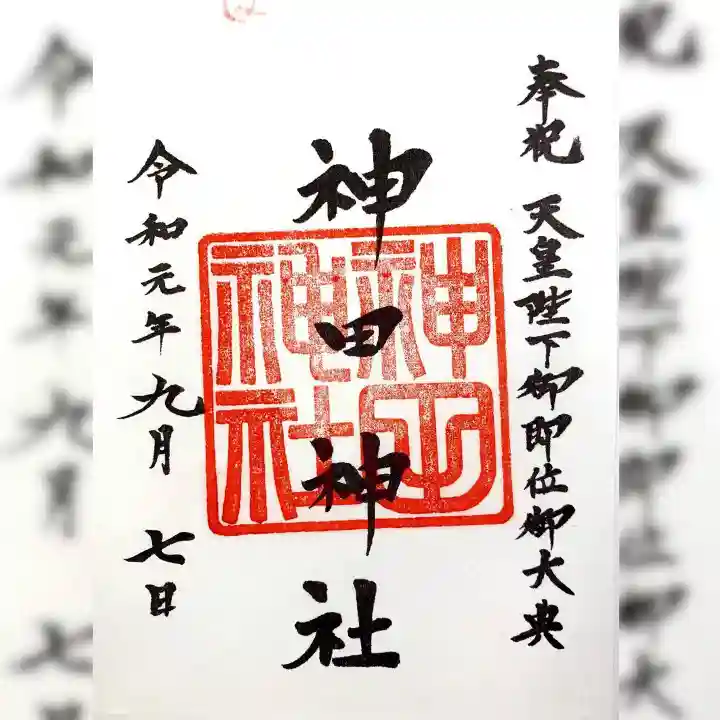 奉祝 天皇陛下御即位御大典
神田神社
令和元年九月 七日
神田神社